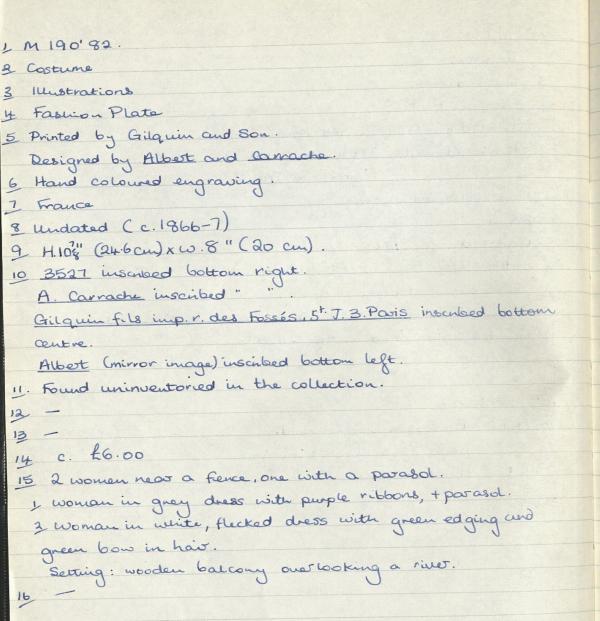 1 M 190'82.
2 Costume
3 Illustrations
4 Fashion Plate
5 Printed by Gilquin and Son.
Designed by Albert and Carrache.
6 Hand coloured engraving.
7 France
8 Undated (c.1866-7)
9 H.10⅞" (24.6cm) x W.8" (20 cm).
10 3527 inscribed bottom right.
A. Carrache inscribed " ".
Gilquin fils imp. r. des Fossés, St. J. 3. Paris inscribed bottom
centre.
Albert (mirror image) inscribed bottom left.
11. Found uninventoried in the collection.
12 —
13 —
14 c. £6.00
15 2 women near a fence, one with a parasol.
1 woman in grey dress with purple ribbons, + parasol.
2 Woman in white, flecked dress with green edging and
green bow in hair.
Setting: wooden balcony overlooking a river.
16 —